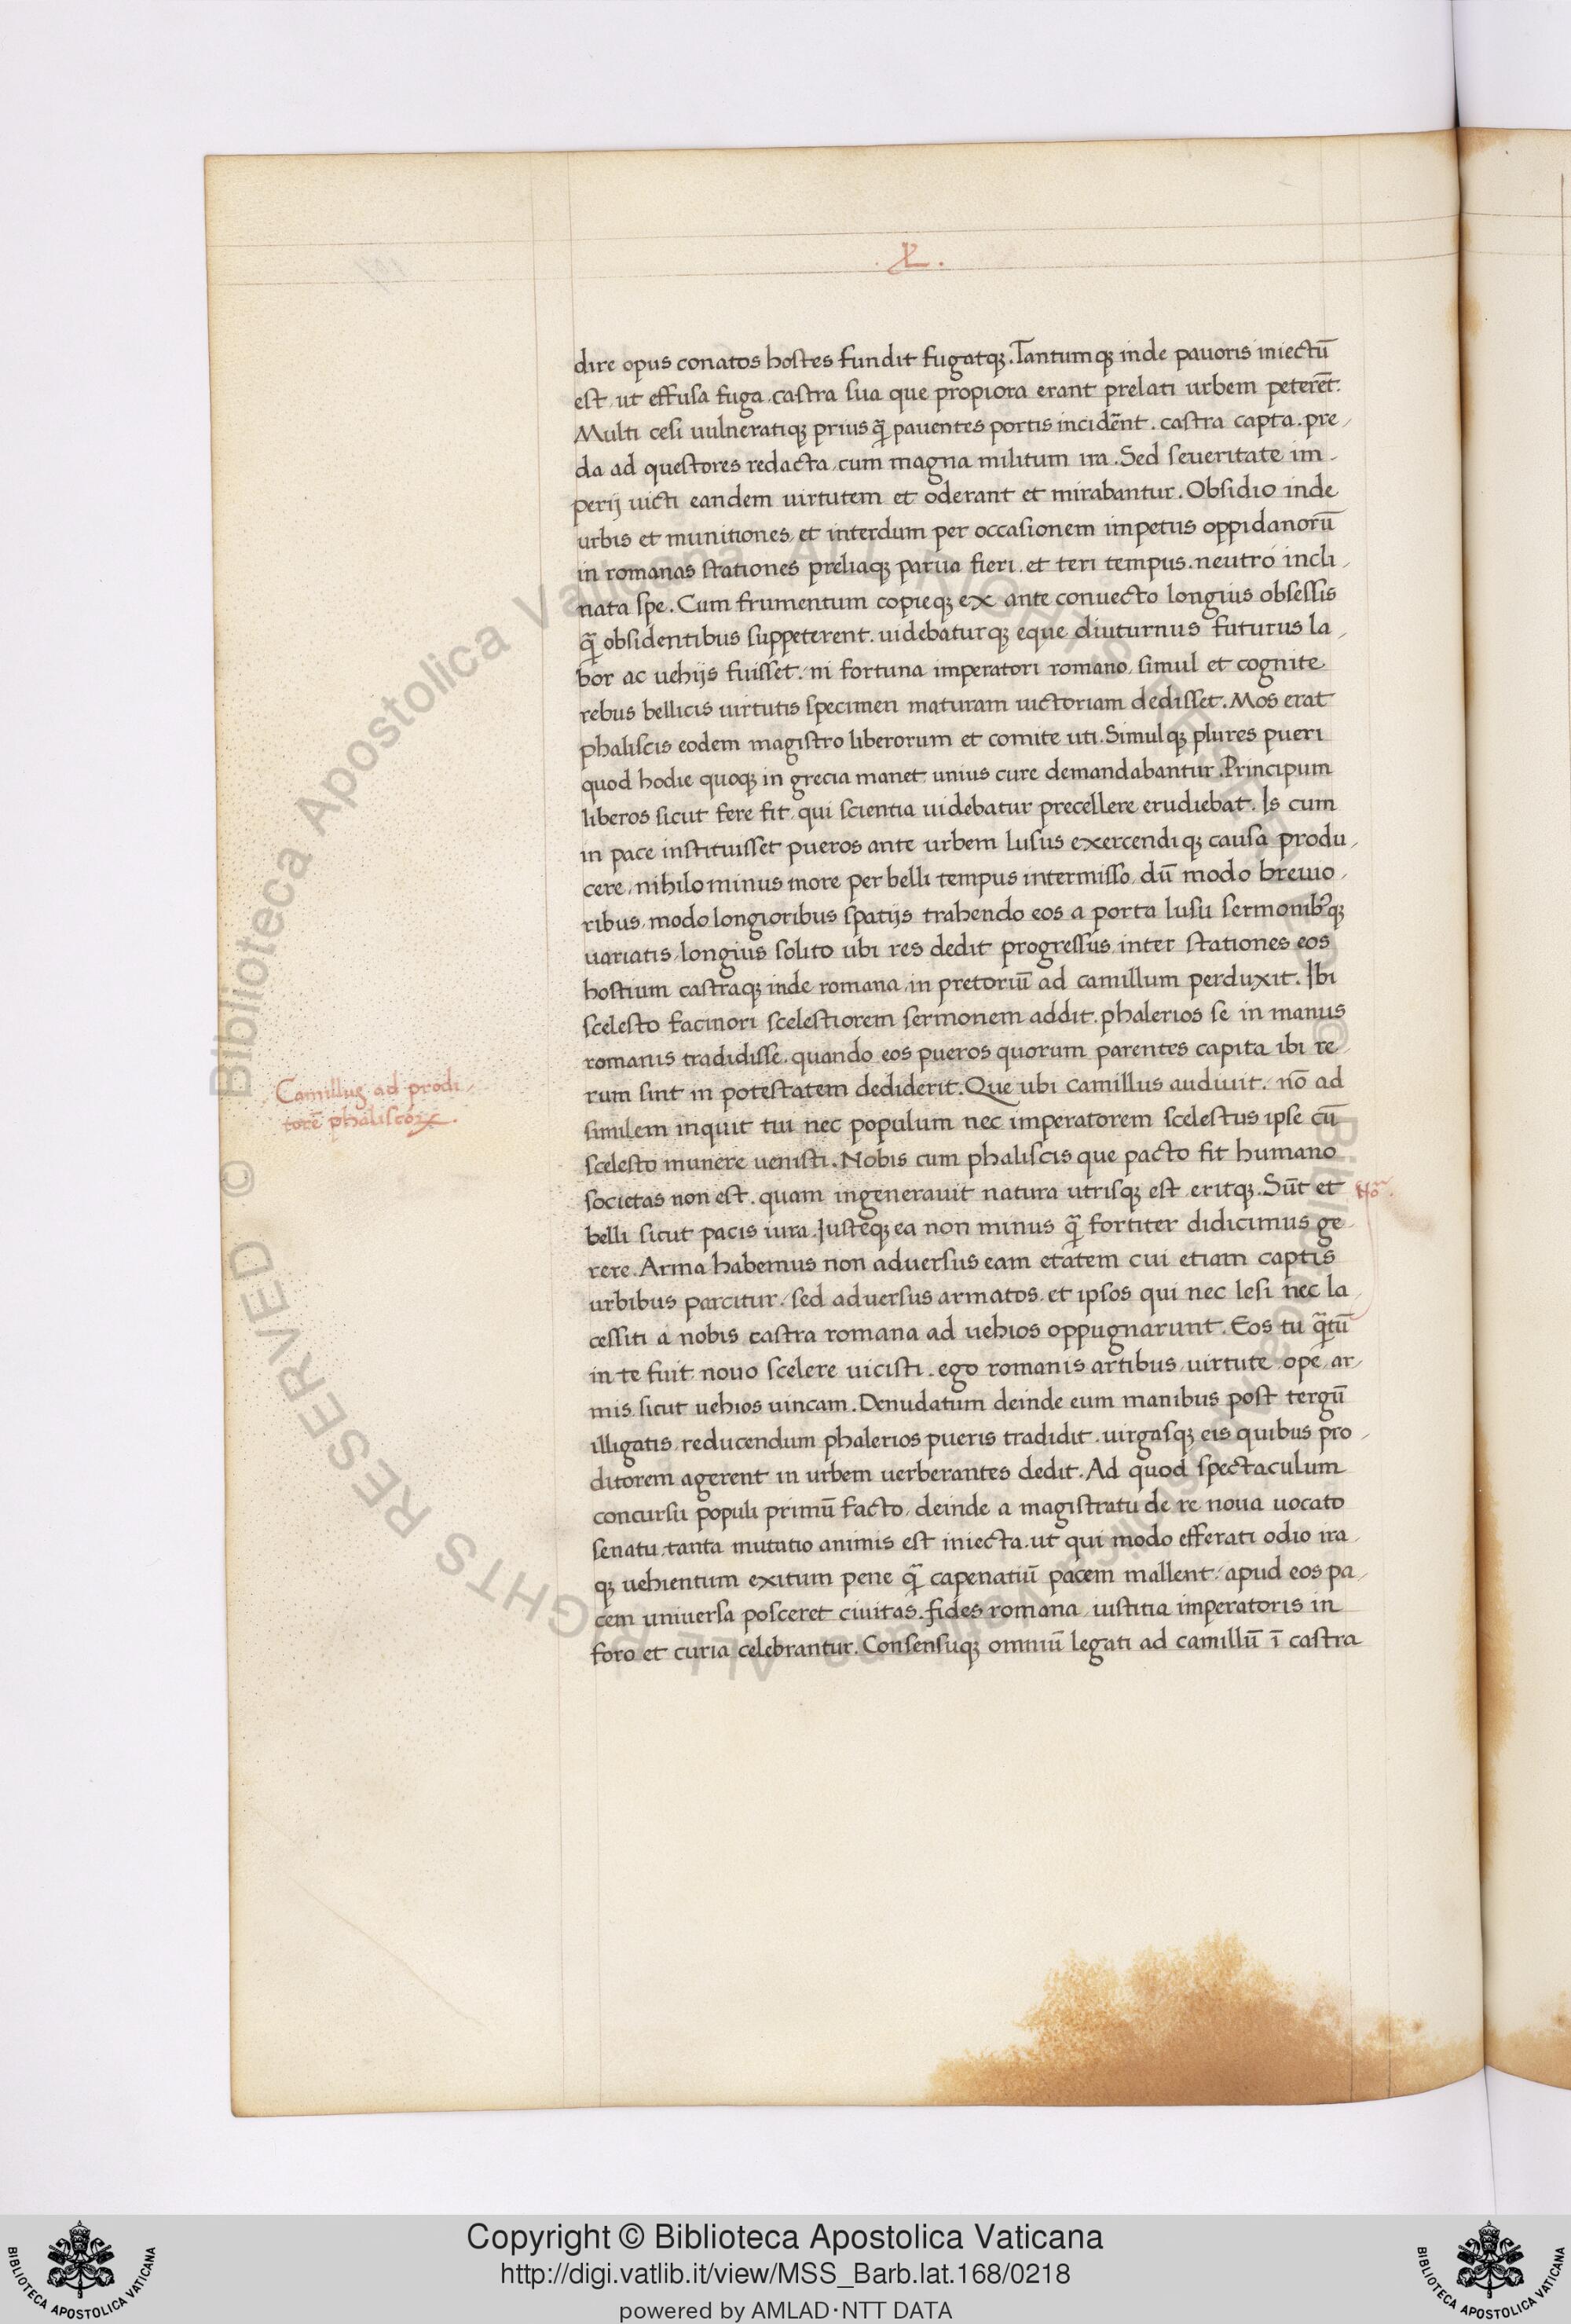 .L.
dire opus conatos hostes fundit fugatqꝫ. Tantumqꝫ inde pauoris iniectū
est, ut effusa fuga, castra sua que propiora erant prelati urbem peterēt.
Multi cesi uulneratiqꝫ prius q̃ pauentes portis incidēnt. castra capta. pre
da ad questores redacta, cum magna militum ira. Sed seueritate im
perij uicti eandem uirtutem et oderant et mirabantur. Obsidio inde
urbis et munitiones, et interdum per occasionem impetus oppidanorū
in romanas stationes preliaqꝫ parua fieri, et teri tempus. neutro incli
nata spe. Cum frumentum copieqꝫ ex ante conuecto longius obsessis
q̃ obsidentibus suppeterent. uidebaturqꝫ eque diuturnus futurus la
bor ac uehijs fuisset. ni fortuna imperatori romano, simul et cognite
rebus bellicis uirtutis specimen maturam uictoriam dedisset. Mos erat
phaliscis eodem magistro liberorum et comite uti. Simulqꝫ plures pueri
quod hodie quoqꝫ in grecia manet unius cure demandabantur. Principum
liberos sicut fere fit, qui scientia uidebatur precellere erudiebat. Is cum
in pace instituisset pueros ante urbem lusus exercendiqꝫ causa produ
cere, nihilo minus more per belli tempus intermisso, dū modo breuio
ribus, modo longioribus spatijs trahendo eos a porta lusu sermonibꝰqꝫ
uariatis, longius solito ubi res dedit progressus, inter stationes eos
hostium castraqꝫ inde romana, in pretoriū ad camillum perduxit. Ibi
scelesto facinori scelestiorem sermonem addit. phalerios se in manus
romanis tradidisse. quando eos pueros quorum parentes capita ibi re
rum sint in potestatem dediderit. Que ubi camillus audiuit. nō ad
Camillus ad prodi
torē phaliscoꝝ.
similem inquit tui nec populum nec imperatorem scelestus ipse cū
scelesto munere uenisti. Nobis cum phaliscis que pacto fit humano
societas non est. quam ingenerauit natura utrisqꝫ est eritqꝫ. Sūt et
belli sicut pacis iura. Iusteqꝫ ea non minus q̃ fortiter didicimus ge
rere. Arma habemus non aduersus eam etatem cui etiam captis
urbibus parcitur. sed aduersus armatos, et ipsos qui nec lesi nec la
cessiti a nobis castra romana ad uehios oppugnarunt. Eos tu q̃tū
in te fuit nouo scelere uicisti. ego romanis artibus, uirtute, ope, ar
mis, sicut uehios uincam. Denudatum deinde eum manibus post tergū
illigatis, reducendum phalerios pueris tradidit. uirgasqꝫ eis quibus pro
ditorem agerent in urbem uerberantes dedit. Ad quod spectaculum
concursu populi primū facto, deinde a magistratu de re noua uocato
senatu, tanta mutatio animis est iniecta. ut qui modo efferati odio ira
qꝫ uehientum exitum pene q̃ capenatiū pacem mallent. apud eos pa
cem uniuersa posceret ciuitas. fides romana, iustitia imperatoris in
foro et curia celebrantur. Consensuqꝫ omniū legati ad camillū ī castra
© Biblioteca Apostolica Vaticana ALL RIGHTS RESERVED
Copyright © Biblioteca Apostolica Vaticana
http://digi.vatlib.it/view/MSS_Barb.lat.168/0218
powered by AMLAD·NTT DATA
BIBLIOTECA APOSTOLICA VATICANA
BIBLIOTECA APOSTOLICA VATICANA